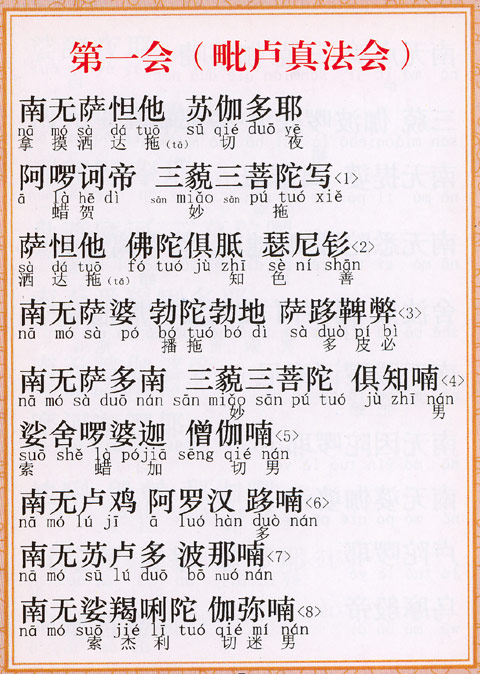 第一会（毗卢真法会）
南无萨怛他 苏伽多耶
nā mó sà dá tuō sū qié duō yē
拿 摸 洒 达 拖(tā) 切 夜
阿啰诃帝 三藐三菩陀写<1>
ā là hē dì sān miǎo sān pú tuó xiě
蜡 贺 妙 拖
萨怛他 佛陀俱胝 瑟尼钐<2>
sà dá tuō fó tuó jù zhī sè ní shān
洒 达 拖(tā) 知 色 善
南无萨婆 勃陀勃地 萨跢鞞弊<3>
nā mó sà pó bó tuó bó dì sà duò pí bì
播 拖 多 皮 必
南无萨多南 三藐三菩陀 俱知喃<4>
nā mó sà duō nán sān miǎo sān pú tuó jù zhī nán
妙 男
娑舍啰婆迦 僧伽喃<5>
suō shě là pó jiā sēng qié nán
索 蜡 加 切 男
南无卢鸡 阿罗汉 跢喃<6>
nā mó lú jī ā luó hàn duò nán
多
南无苏卢多 波那喃<7>
nā mó sū lú duō bō nuó nán
南无娑羯唎陀 伽弥喃<8>
nā mó suō jié lī tuó qié mí nán
索 杰 利 切 迷 男